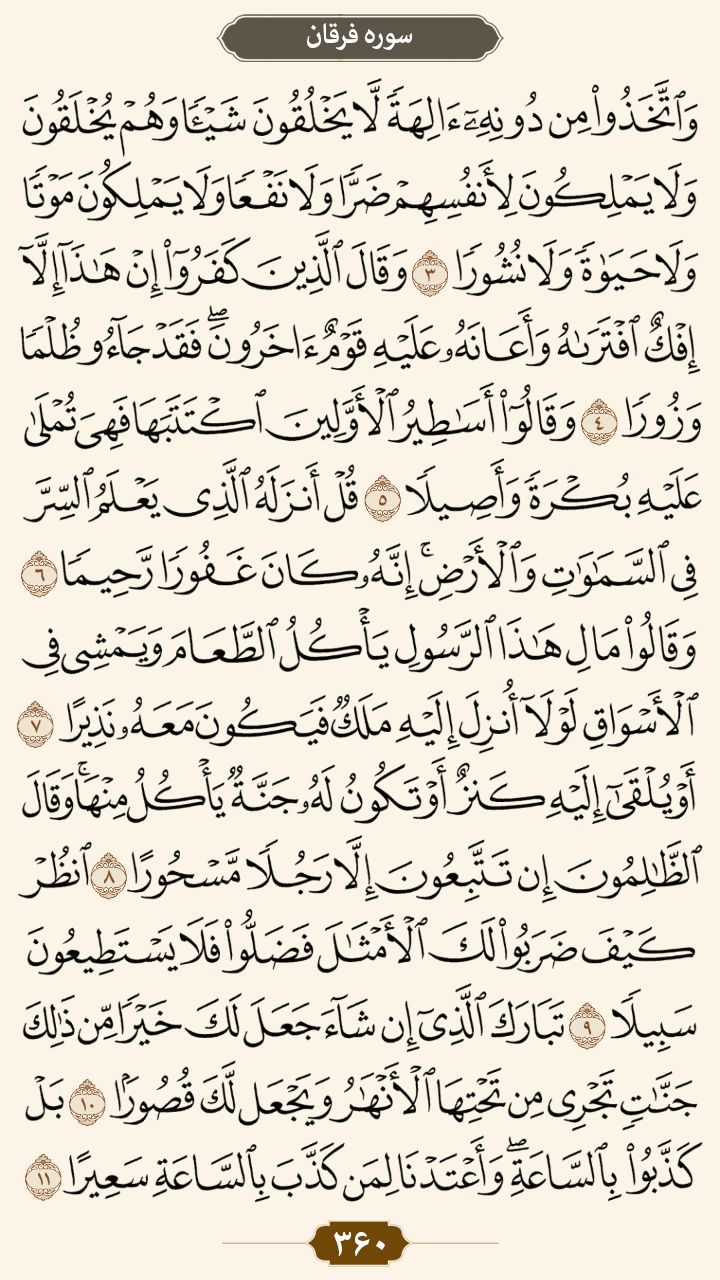 سوره فرقان
وَٱتَّخَذُوا۟ مِن دُونِهِۦٓ ءَالِهَةً لَّا يَخْلُقُونَ شَيْـًٔا وَهُمْ يُخْلَقُونَ
وَلَا يَمْلِكُونَ لِأَنفُسِهِمْ ضَرًّا وَلَا نَفْعًا وَلَا يَمْلِكُونَ مَوْتًا
وَلَا حَيَوٰةً وَلَا نُشُورًا ٣ وَقَالَ ٱلَّذِينَ كَفَرُوٓا۟ إِنْ هَـٰذَآ إِلَّآ
إِفْكٌ ٱفْتَرَىٰهُ وَأَعَانَهُۥ عَلَيْهِ قَوْمٌ ءَاخَرُونَ ۖ فَقَدْ جَآءُو ظُلْمًا
وَزُورًا ٤ وَقَالُوٓا۟ أَسَـٰطِيرُ ٱلْأَوَّلِينَ ٱكْتَتَبَهَا فَهِىَ تُمْلَىٰ
عَلَيْهِ بُكْرَةً وَأَصِيلًا ٥ قُلْ أَنزَلَهُ ٱلَّذِى يَعْلَمُ ٱلسِّرَّ
فِى ٱلسَّمَـٰوَٰتِ وَٱلْأَرْضِ ۚ إِنَّهُۥ كَانَ غَفُورًا رَّحِيمًا ٦
وَقَالُوا۟ مَالِ هَـٰذَا ٱلرَّسُولِ يَأْكُلُ ٱلطَّعَامَ وَيَمْشِى فِى
ٱلْأَسْوَاقِ لَوْلَآ أُنزِلَ إِلَيْهِ مَلَكٌ فَيَكُونَ مَعَهُۥ نَذِيرًا ٧
أَوْ يُلْقَىٰٓ إِلَيْهِ كَنزٌ أَوْ تَكُونُ لَهُۥ جَنَّةٌ يَأْكُلُ مِنْهَا ۚ وَقَالَ
ٱلظَّـٰلِمُونَ إِن تَتَّبِعُونَ إِلَّا رَجُلًا مَّسْحُورًا ٨ ٱنظُرْ
كَيْفَ ضَرَبُوا۟ لَكَ ٱلْأَمْثَـٰلَ فَضَلُّوا۟ فَلَا يَسْتَطِيعُونَ
سَبِيلًا ٩ تَبَارَكَ ٱلَّذِىٓ إِن شَآءَ جَعَلَ لَكَ خَيْرًا مِّن ذَٰلِكَ
جَنَّـٰتٍ تَجْرِى مِن تَحْتِهَا ٱلْأَنْهَـٰرُ وَيَجْعَل لَّكَ قُصُورًۢا ١٠ بَلْ
كَذَّبُوا۟ بِٱلسَّاعَةِ ۖ وَأَعْتَدْنَا لِمَن كَذَّبَ بِٱلسَّاعَةِ سَعِيرًا ١١
۳۶۰